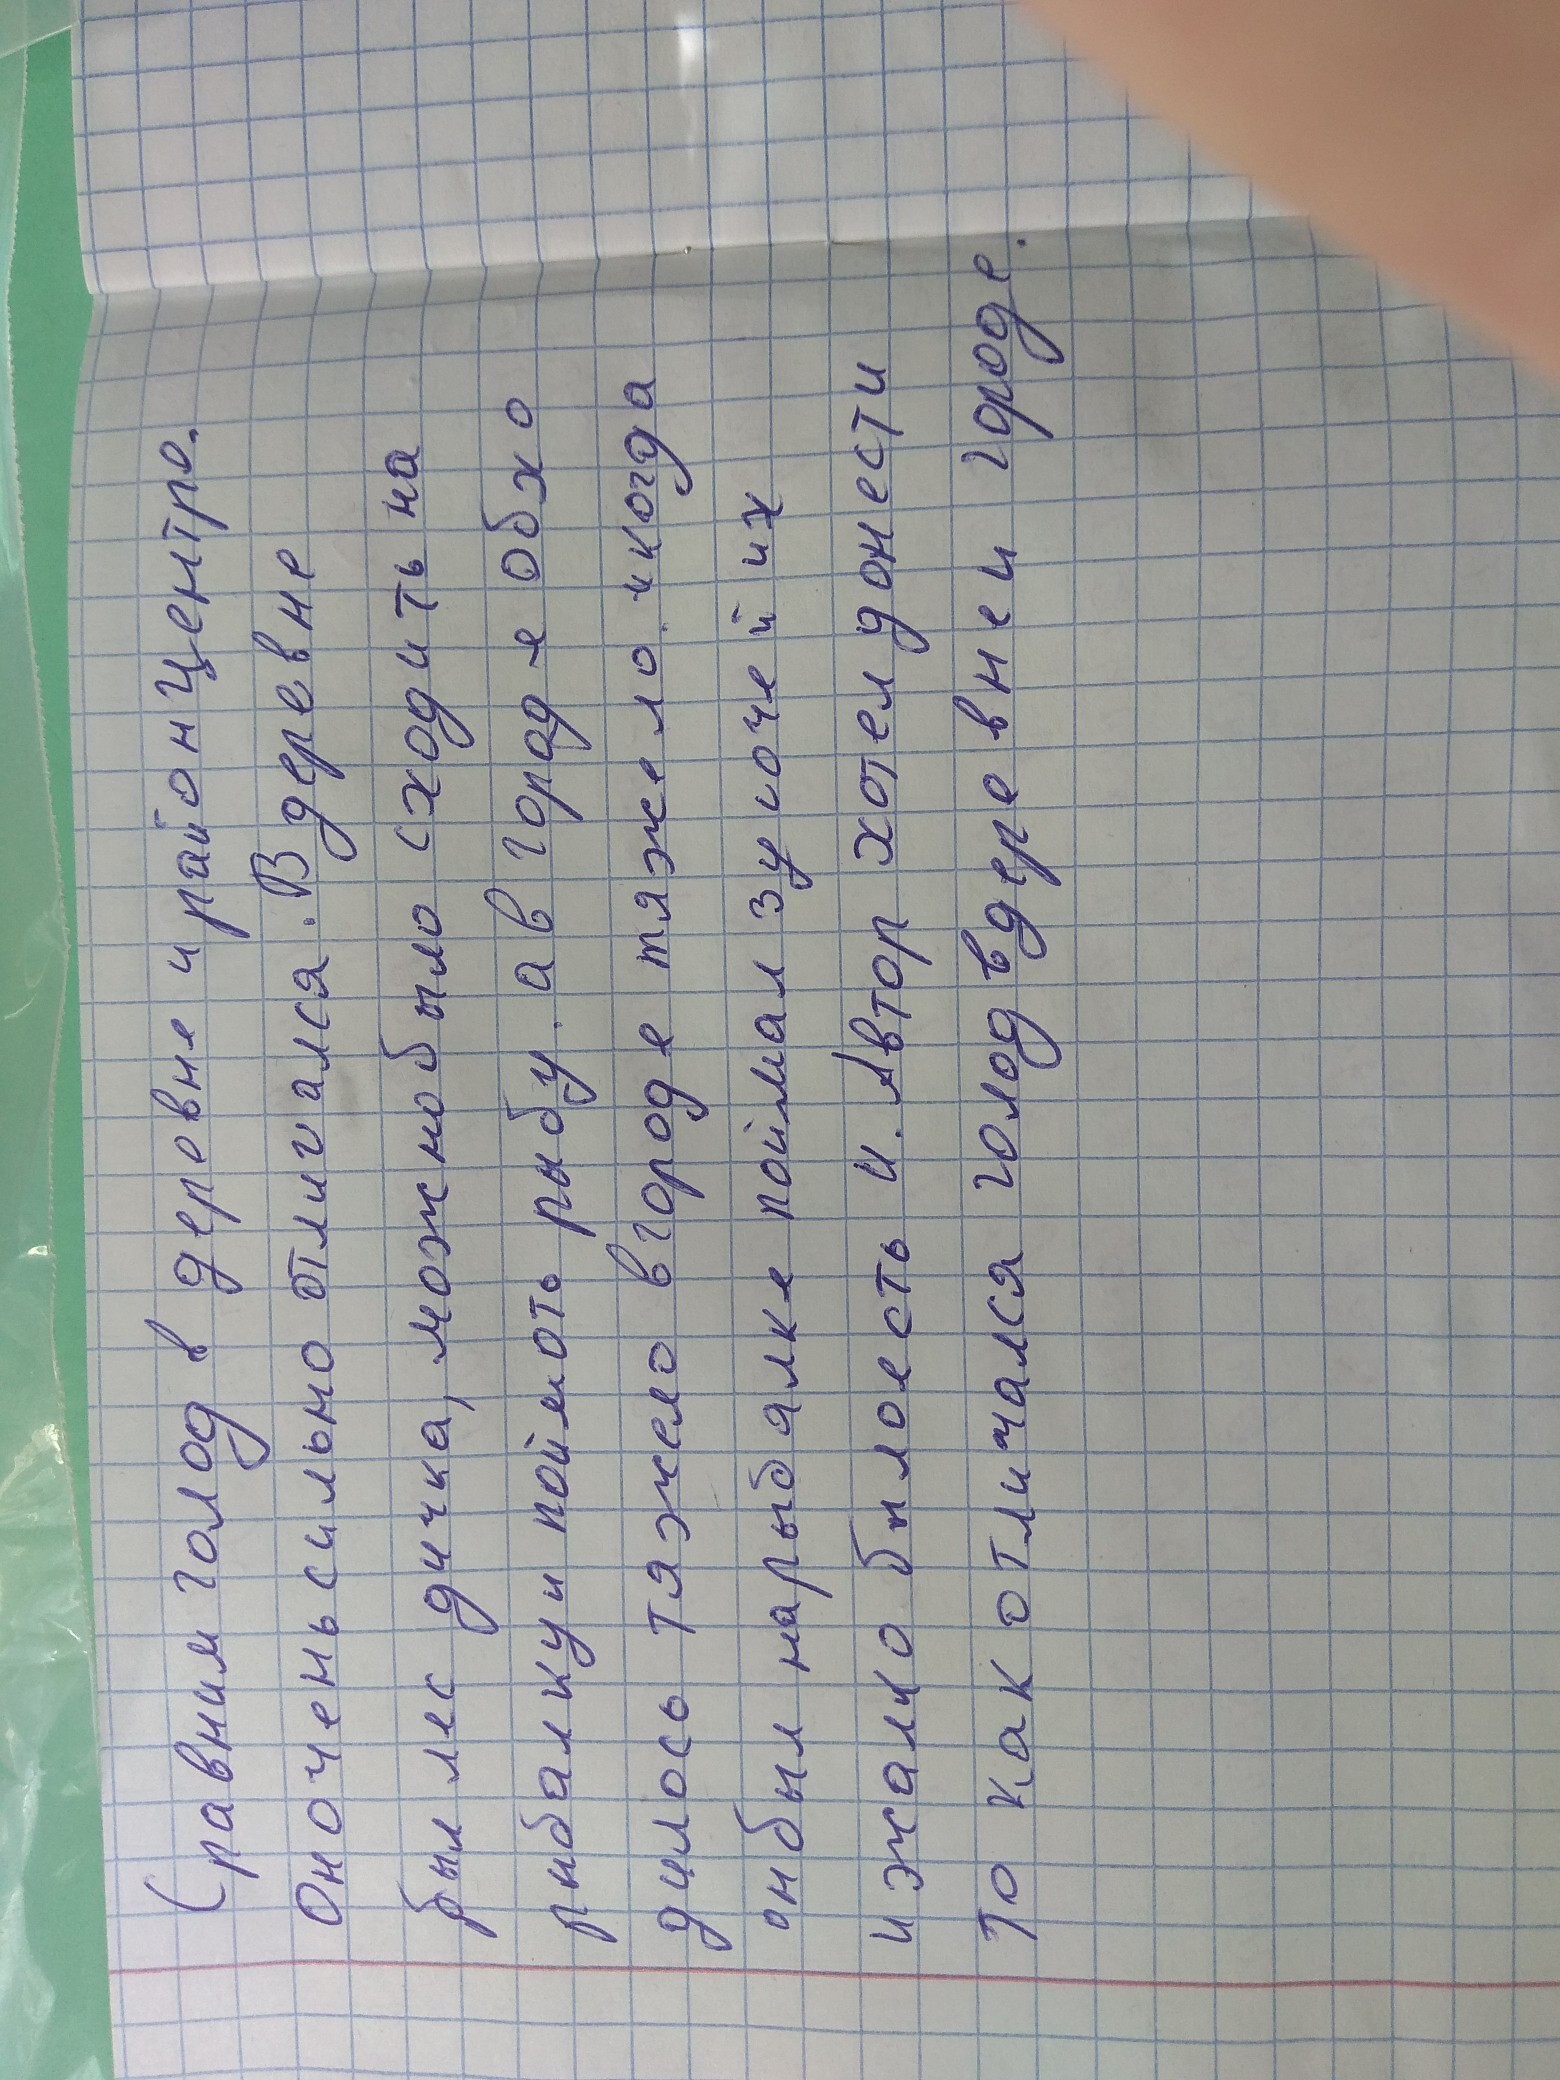 Сравним голод в деровне и районцентре.
Он очень сильно отличался. В деревне
был лес дичка, можно было сходить на
рыбалку и поймоть рыбу. а в городе обхо
дилось тяжело в городе тяжело. и когда
он был на рыбалке поймал зуючей их
и жалко было есть и. Автор хотел донести
То как отличался голод в деревне и городе.